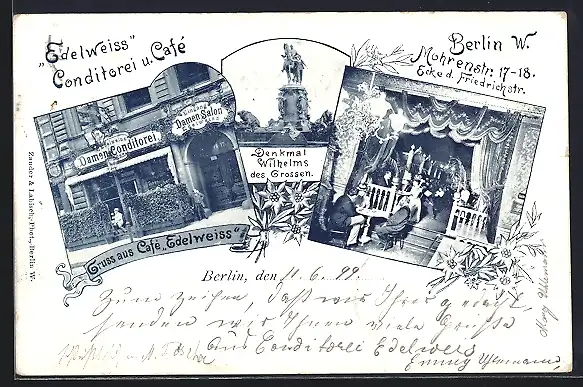 "Edelweiss"
Conditorei u. Café
Berlin W.
Mohrenstr. 17-18.
Ecke d. Friedrichstr.
Damen Conditorei
Damen Salon
Denkmal
Wilhelms
des Grossen.
Gruss aus Café „Edelweiss"
Zander & Labisch, Phot., Berlin W.
Berlin, den 11. 6. 99.
Zum Zeichen, daß wir Ihrer gedacht
senden wir Ihnen viele Grüße
aus Conditorei Edelweis